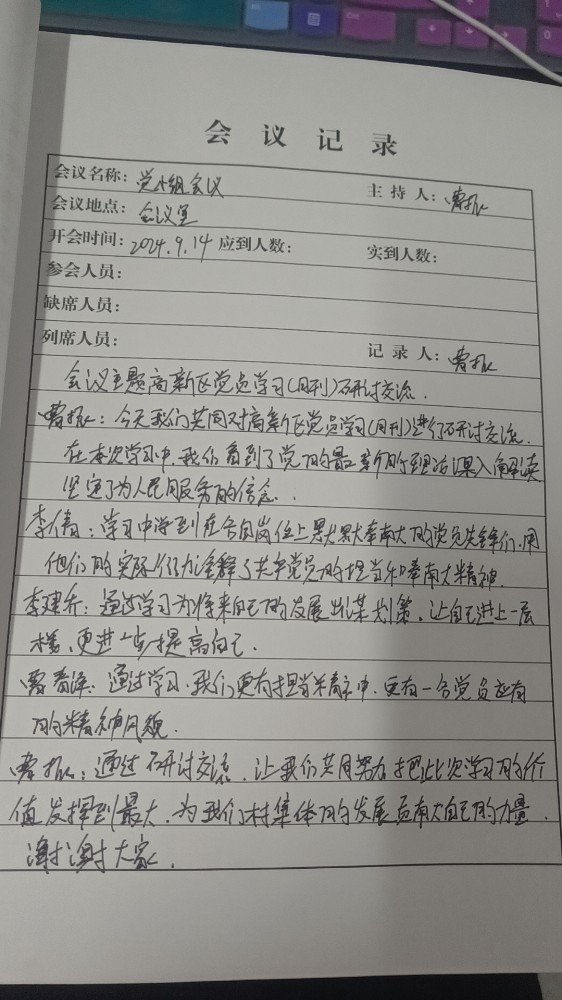 会议记录
会议名称：党小组会议 主持人：曹振
会议地点：会议室
开会时间：2024.9.14 应到人数： 实到人数：
参会人员：
缺席人员：
列席人员： 记录人：曹振
会议主题高新区党员学习(月刊)研讨交流.
曹振：今天我们共同对高新区党员学习(月刊)进行研讨交流.
在本次学习中,我们看到了党的最新的理论深入解读
坚定了为人民服务的信念.
李倩：学习中学到在各自岗位上默默奉献的党员先锋们,用
他们的实际行动诠释了共产党员的担当和奉献精神.
李建乔：通过学习为将来自己的发展出谋划策,让自己进上一层
楼,更进一步提高自己.
曹春泽：通过学习,我们更有担当精神,更有一名党员应有
的精神风貌.
曹振：通过研讨交流,让我们共同努力把此次学习的价
值发挥到最大,为我们村集体的发展贡献自己的力量.
谢谢大家.